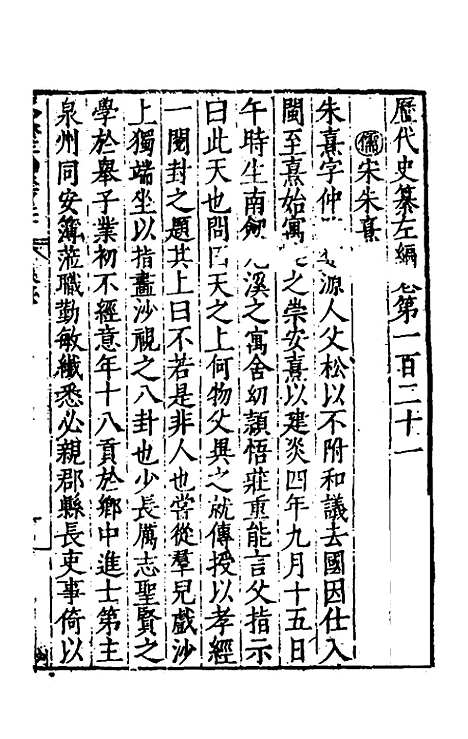 歷代史纂左編卷第一百二十一
儒宋朱熹
朱熹字仲源人父松以不附和議去國因仕入
閩至熹始寓之崇安熹以建炎四年九月十五日
午時生南劍溪之寓舍幼頴悟莊重能言父指示
曰此天也問曰天之上何物父異之就傳授以孝經
一閱封之題其上曰不若是非人也嘗從羣兒戲沙
上獨端坐以指畫沙視之八卦也少長厲志聖賢之
學於舉子業初不經意年十八貢於鄉中進士第主
泉州同安簿蒞職勤敏纖悉必親郡縣長吏事倚以